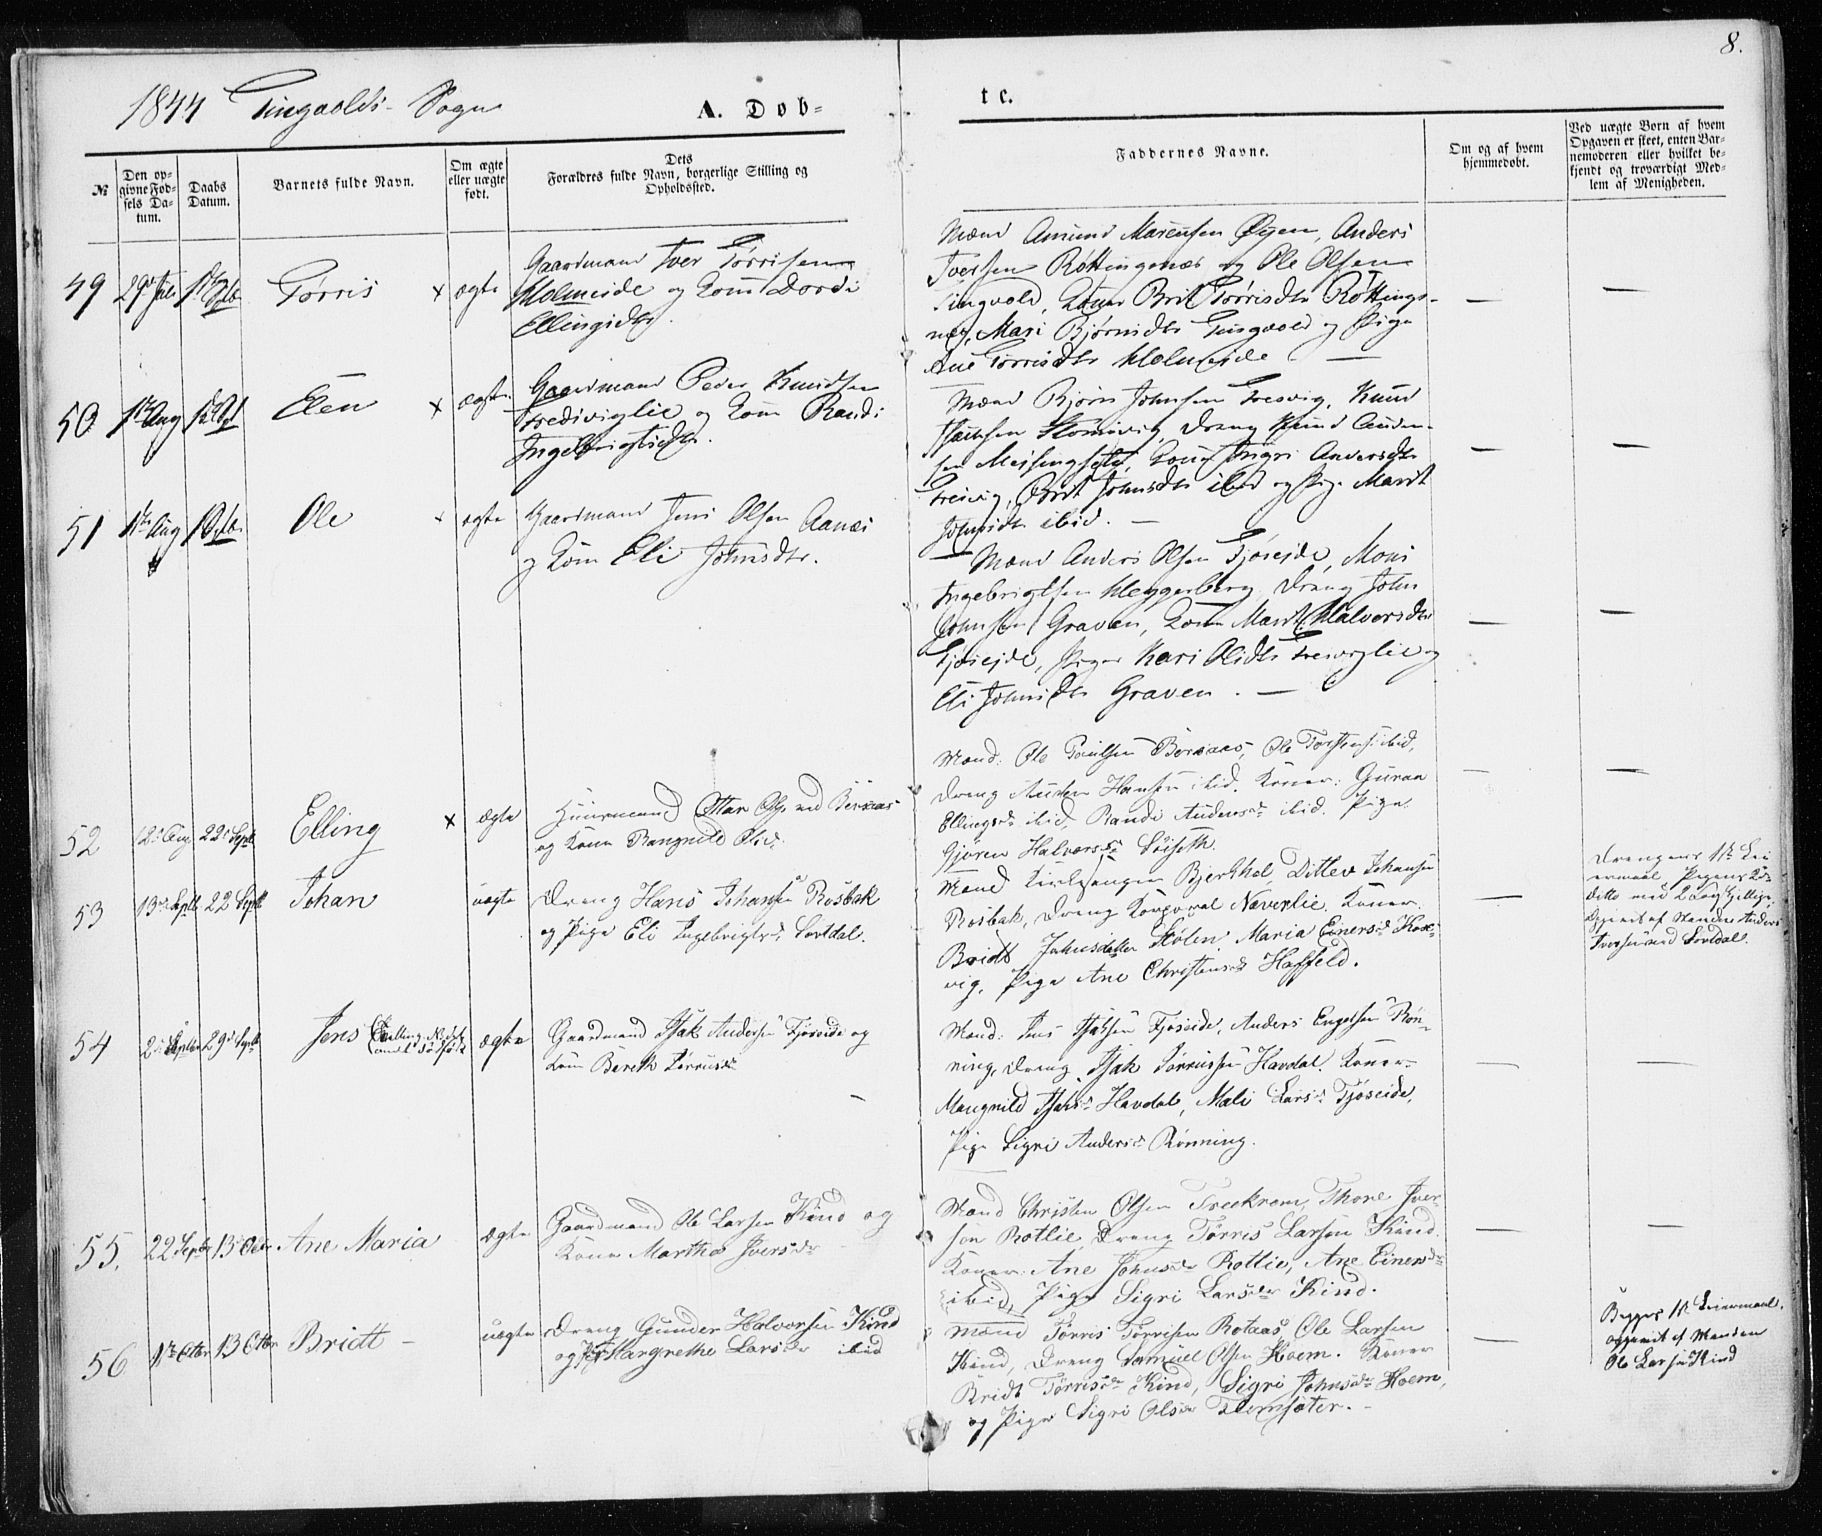 8.
1844 Tingvolds Sogn
A. Dob-
te.
№
Den op-
givne Fød-
sels Da-
tum.
Daabs
Datum.
Barnets fulde Navn.
Om ægte
eller uægte
født.
Dets
Forældres fulde Navn, borgerlige Stilling og
Opholdssted.
Faddernes Navne.
Om og af hvem
hjemmedøbt.
Ved uægte Børn af hvem
Opgaven er skeet, enten Bar-
nemoderen eller hvilket be-
kjendt og troværdigt Med-
lem af Menigheden.
49
Tørris
x
ægte
Gaardmand Iver Tørrisen
Holmeide og Kone Dordi
Ellingsdtr.
Mænd Amund Øyen, Anders
Iversen Røttingsnæs og Ole Olsen
Tingvold, Koner Brit Tørrisdtr Røttings-
næs, Mari Bjørnsdtr Tingvold og Pige
Ane Tørrisdtr Holmeide —
—
—
50
1te Aug
Elen
x
ægte
Gaardmand Peder Knudsen
og Kone Randi
Ingebrigtsdtr.
Mænd Bjørn Johnsen Fresvig, Knud
Dreng Knud
Kone Ingri Andersdtr
Brit Johnsdtr ibid og Pige Marit
Johnsdtr ibid. —
—
—
51
Aug
Ole
ægte
Gaardmand Jens Olsen Aanæs
og Kone Eli Johnsdtr.
— Mænd Anders Olsen Fjøseide, Mons
Ingebrigtsen Heggerberg, Dreng John
Johnsen Graven, Kone Marit Halvorsdtr
Fjøseide, Piger Kari Olsdtr og
Eli Johnsdtr Graven. —
—
—
52
12 Aug
22 Septb
Elling
x
ægte
Huusmand Ole ved Bersaas
og Kone Rangnild Olsdr.
Mænd: Ole Paulsen Bersaas, Ole Torstens. ibid,
Dreng Anders Hansen ibid. Koner: Guraa
Ellingsdr ibid, Randi Andersdr ibid. Pige
Gjøren Halvorsdr Søiseth.
—
—
53
13 Septb
22 Septb
Johan
uægte
Dreng Hans Johansen Rosbak
og Pige Eli Ingebrigtsdr Sortdal.
Mænd Kirkesanger Bjerkhol, Ditlev Johansen
Rosbak, Dreng Korporal Naverlie. Koner
Bridt Johnsdatter Stølen, Maria Einersdr
vig, Pige Ane Christensdr Haffeld.
—
Drengens 1te Lei
ermaal Pigens 2d
ditto
opgivet af Manden Anders
Iversen ved Sortdal.
54
2 Septbr
29 Septbr
Jens
ægte
Gaardmand Isak Andersen Fjøseide og
Kone Bereth Tørrisdr
—
Mænd: Jens Isaksen Fjøseide, Anders Engelsen Røn-
ning, Dreng Isak Tørrissen Havdal. Koner
Mangnild Isaksdr Havdal, Mali Larsdr Fjøseide,
Pige Sigri Andersdr Rønning.
—
—
55.
22 Septbr
13 Octbr
Ane Maria
ægte
Gaardmand Ole Larsen Kind og
Kone Martha Iversdr
Mænd Christen Olsen Treekrem, Thore Iver-
sen Rotlie, Dreng Tørris Larsen Kind.
Koner: Ane Johnsdr Rotlie, Ane Einersdr
ibid, Pige Sigri Larsdr Kind.
—
—
56
1te Octbr
13 Octbr
Bridt —
uægte
Dreng Gunder Halvorsen Kind
og Pige Margrethe Larsdr ibid
Mænd Tørris Tørrisen Rotaas, Ole Larsen
Kind, Dreng Samuel Olsen Hoem. Koner
Bridt Tørrisdr Kind, Sigri Johnsdr Hoem,
og Pige Sigri Olsdr Flemsæter. —
—
Begges 1te Leiermaal,
opgivet af Manden
Ole Larsen Kind